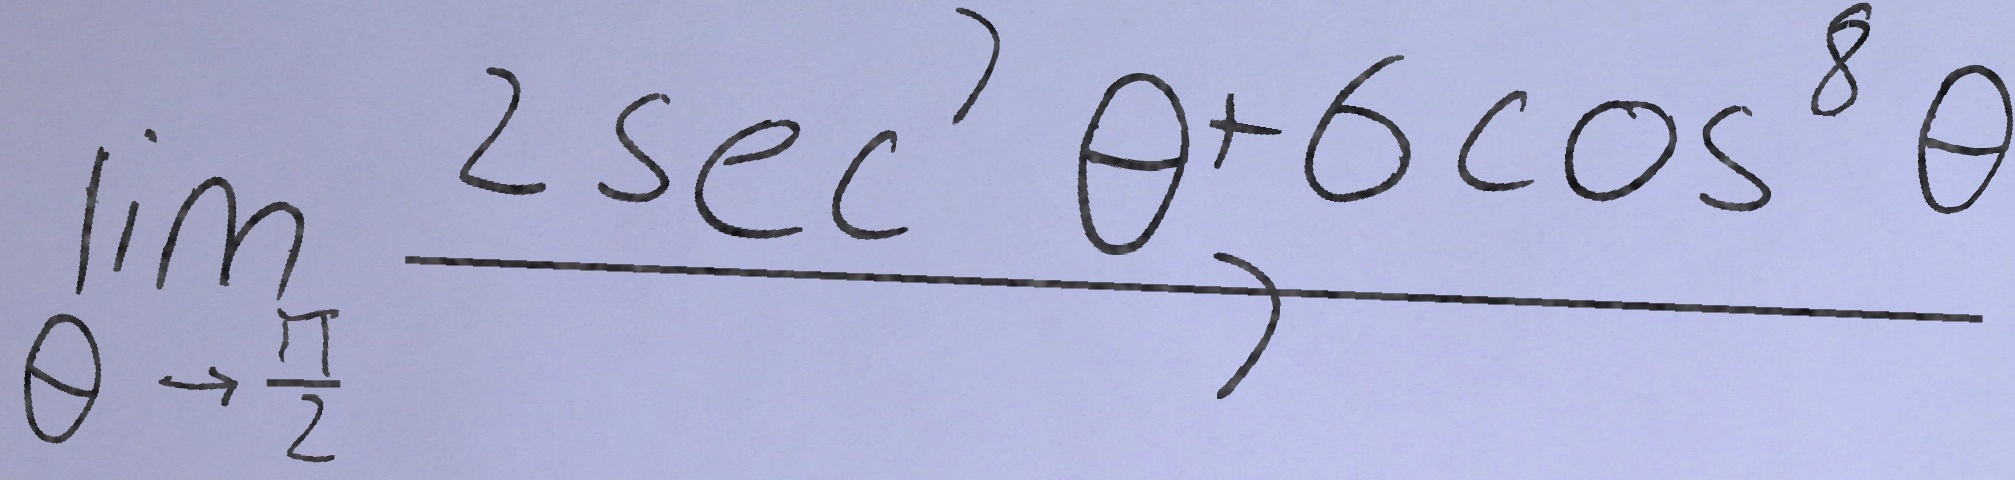 \lim_{\theta \to \frac{\pi}{2}} \frac{2 \sec^7 \theta + 6 \cos^8 \theta}{7}